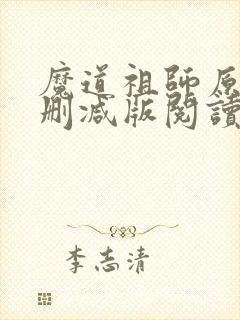 魔道祖師原
刪減版閱讀
李志清